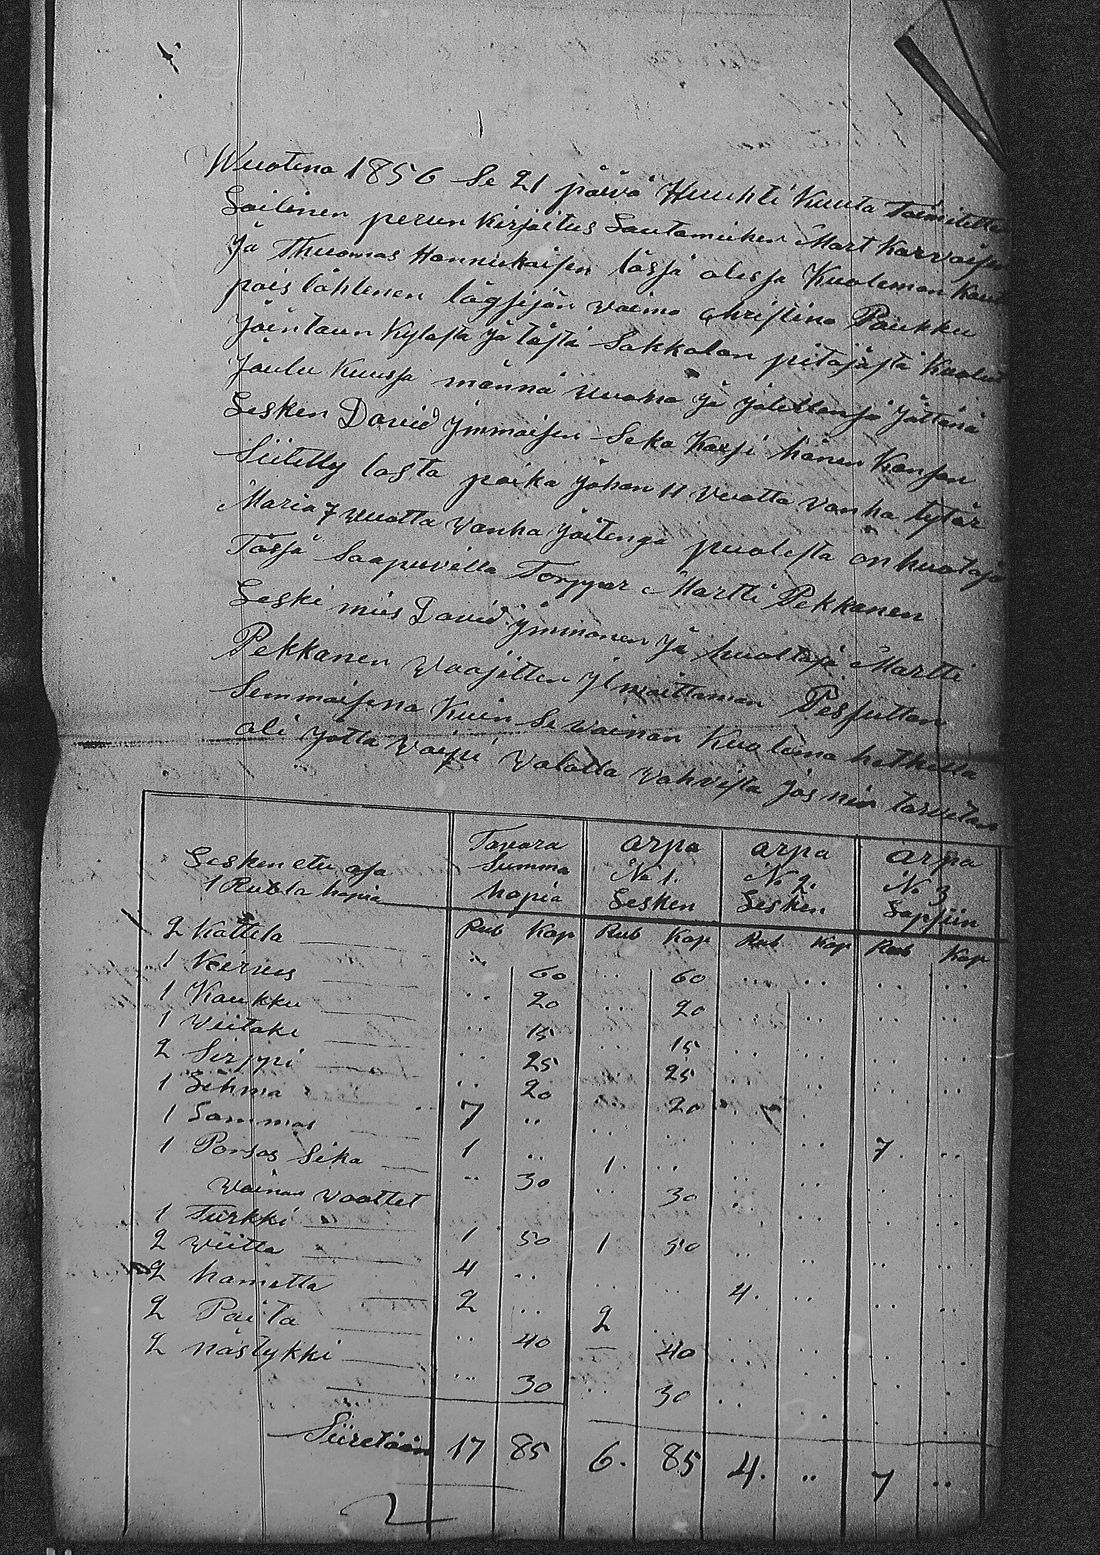 Wuotena 1856 se 21 päivä Huuhti Kuuta Toimitettu
Soitinen perun Kirjoitus Lautamiehen Mart Karvaisen
Ja Thuomas Hannickaisen läsjä olesja Kuoleman Kaut
pois lähtenen lägsejän vaimo Christina Paukku
Jäentaun Kylästä Ja tästä Sakkolan pitäjästä Kuolut
Joulu Kuusja männä vuona Ja Jälellensä Jättänä
Lesken David Jmmoisen Seka Kaxsi hänen Kansan
Siitetty lasta poika Johan 11 vuotta vanha tytär
Maria 7 vuotta vanha Joitenga puolesta on huotaja
Tässä Saapuvilla Torppar Martti Pekkanen
Leski mies David Jmmonen Ja huoltaja Martti
Pekkanen Waajitten Jlmoittaman Pesjuttan
Semmoisena Kuin se vainan Kuolema hetkellä
oli Jotta voipi valalla vahvista Jos niin tarvitan
Lesken etu osa
1 Rubla hopia
Tavara Summa hopia
arpa No 1. Lesken
arpa No 2. Lesken
arpa No 3
Rub Kop Rub Kop Rub Kop Rub Kop
2 Kattila .. 60 .. 60 .. .. .. ..
1 Kernes .. 20 .. 20 .. .. ..
1 Kaukku .. 15 .. 15 .. .. .. ..
1 Viitake .. 25 .. 25 .. .. .. ..
2 Sirppi .. 20 .. 20 .. ..
1 Lehmä 7 .. .. .. .. .. 7. ..
1 Lammas 1 .. 1. .. .. .. .. ..
1 Porsas Sika .. 30 .. 30 .. .. .. ..
vainan vaattet
1 Turkki 1 50 1 50 .. .. .. ..
2 viitta 4 .. .. .. 4. .. .. ..
2 hametta 2 .. 2 .. .. .. ..
2 Paita .. 40 — 40 .. .. ..
2 nästykki .. 30 .. 30 .. ..
Siiretään 17 85 6. 85 4. .. 7 ..
2